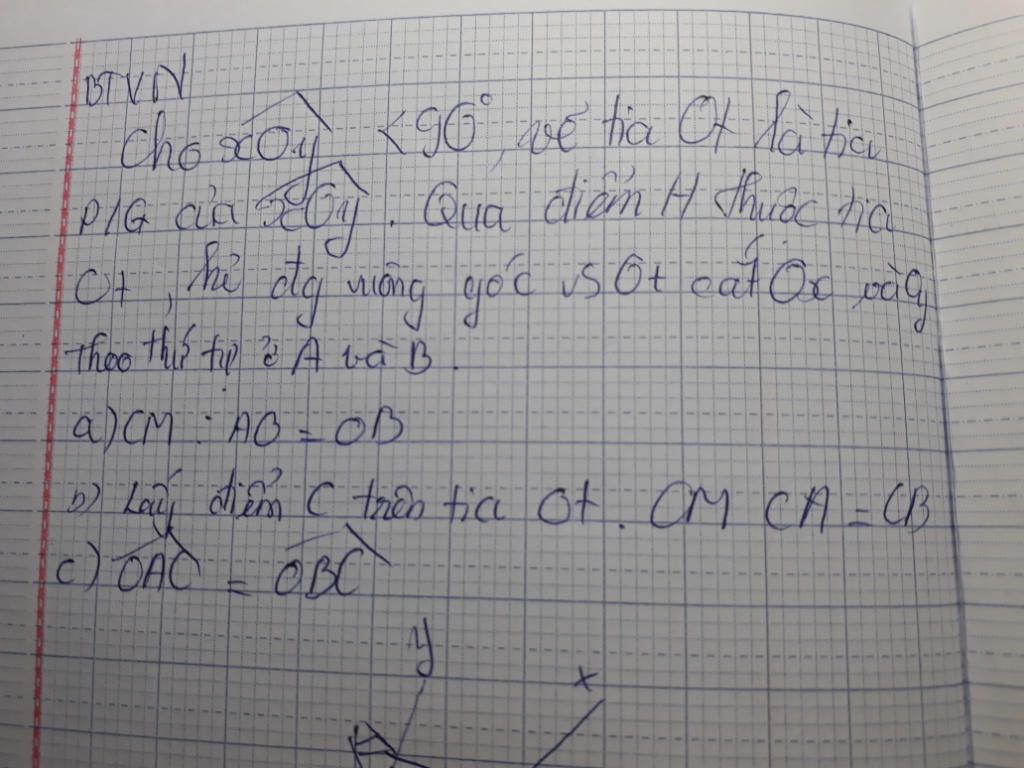 BTVN
Cho xOy < 90°, vẽ tia Ot là tia
P/G của xOy. Qua điểm H thuộc tia
Ot, kẻ đg vuông góc vs Ot cắt Ox và Oy
theo thứ tự ở A và B.
a) CM : AO = OB
b) Lấy điểm C trên tia Ot. CM CA = CB
c) OAC = OBC
y
x